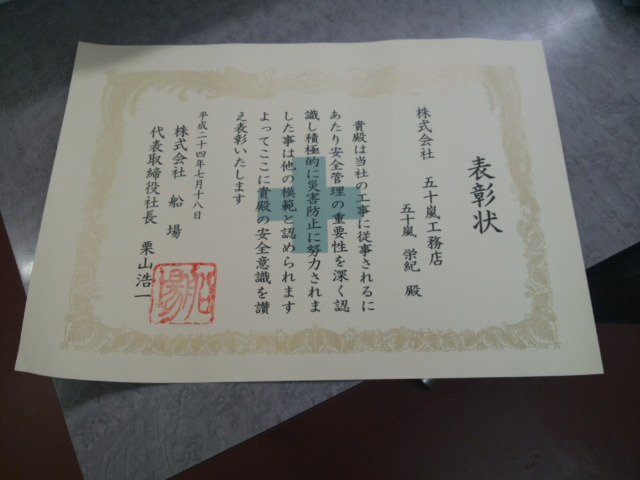 表彰状
株式会社 五十嵐工務店
五十嵐 栄紀 殿
貴殿は当社の工事に従事されるに
あたり安全管理の重要性を深く認
識し積極的に災害防止に努力されま
した事は他の模範と認められます
よってここに貴殿の安全意識を讃
え表彰いたします
平成二十四年七月十八日
株式会社 船場
代表取締役社長 栗山浩一
船場